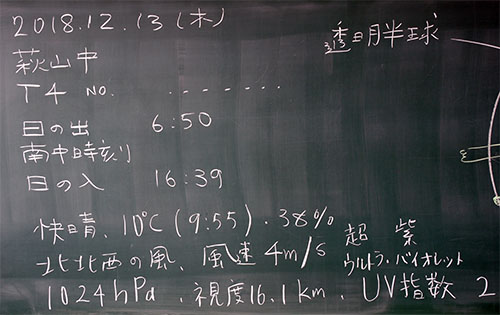 2018.12.13(木)
透明半球
萩山中
T4 NO. .......
日の出 6:50
南中時刻
日の入 16:39
快晴、10℃(9:55)・38%
北北西の風、風速4m/s
超 紫
ウルトラ・バイオレット
1024hPa、視度16.1km、UV指数 2